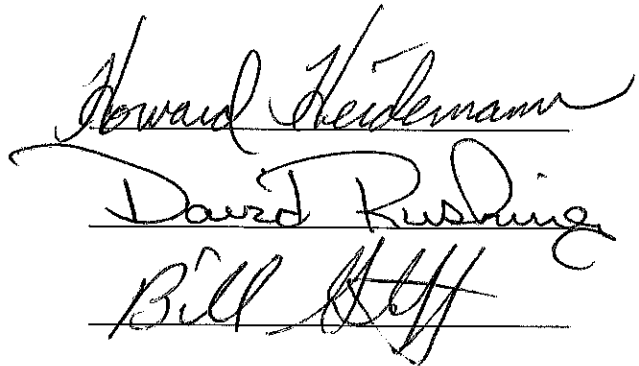 Howard Heidemann
David Rushing
Bill